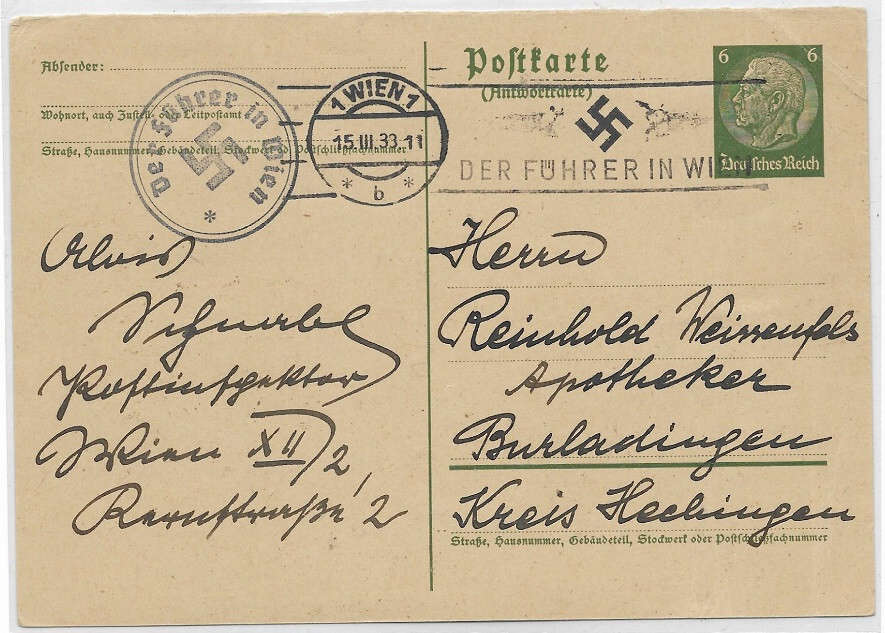 Absender:
Wohnort, auch Zustell- oder Leitpostamt
Straße, Hausnummer, Gebäudeteil, Stockwerk od. Postschließfachnummer
Der Führer in Wien
*
1 WIEN 1
15.III.38.11
* b *
Alois
Schnabl
Postinspektor
Wien XII/2,
Kernstraße 2
Postkarte
(Antwortkarte)
DER FÜHRER IN WIEN
6 6
Deutsches Reich
Herrn
Reinhold Weissenfels
Apotheker
Burladingen
Kreis Hechingen
Straße, Hausnummer, Gebäudeteil, Stockwerk oder Postschließfachnummer